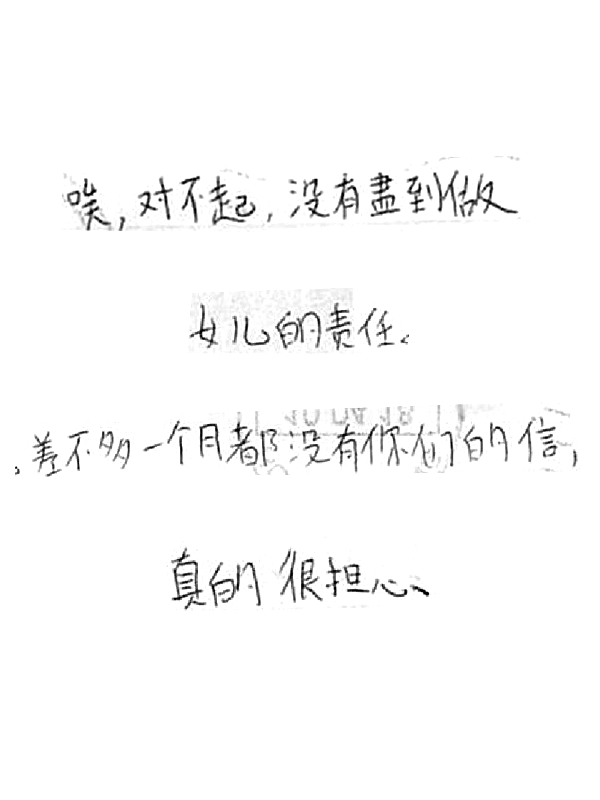 唉,对不起,没有盡到做
女儿的责任.
.差不多一个月都没有你们的信,
真的很担心、